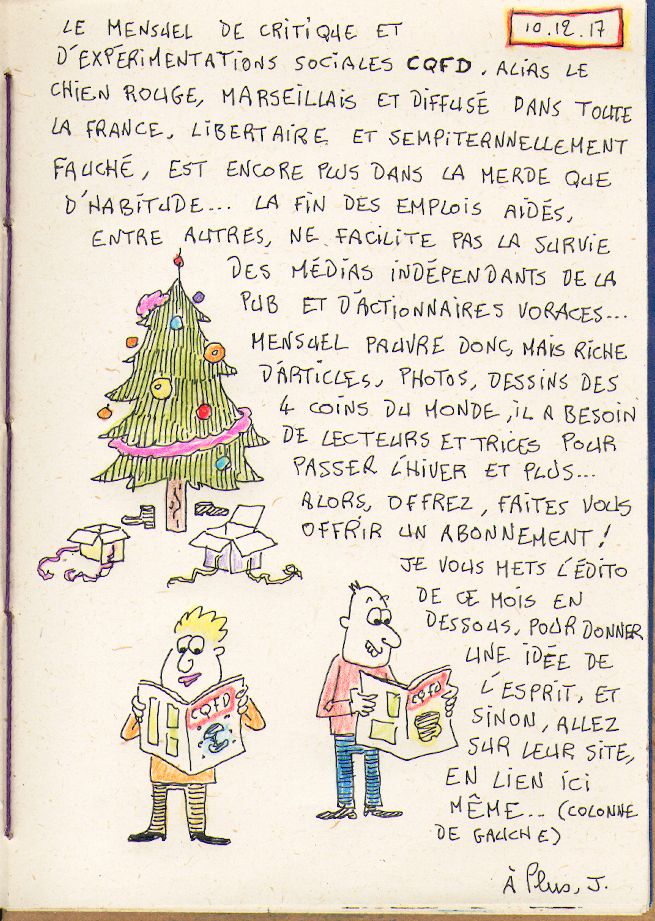 10.12.17
LE MENSUEL DE CRITIQUE ET
D'EXPÉRIMENTATIONS SOCIALES CQFD, ALIAS LE
CHIEN ROUGE, MARSEILLAIS ET DIFFUSÉ DANS TOUTE
LA FRANCE, LIBERTAIRE ET SEMPITERNNELLEMENT
FAUCHÉ, EST ENCORE PLUS DANS LA MERDE QUE
D'HABITUDE... LA FIN DES EMPLOIS AIDÉS,
ENTRE AUTRES, NE FACILITE PAS LA SURVIE
DES MÉDIAS INDÉPENDANTS DE LA
PUB ET D'ACTIONNAIRES VORACES...
MENSUEL PAUVRE DONC, MAIS RICHE
D'ARTICLES, PHOTOS, DESSINS DES
4 COINS DU MONDE, IL A BESOIN
DE LECTEURS ET TRICES POUR
PASSER L'HIVER ET PLUS...
ALORS, OFFREZ, FAITES VOUS
OFFRIR UN ABONNEMENT!
JE VOUS METS L'ÉDITO
DE CE MOIS EN
DESSOUS, POUR DONNER
UNE IDÉE DE
L'ESPRIT, ET
SINON, ALLEZ
SUR LEUR SITE,
EN LIEN ICI
MÊME... (COLONNE
DE GAUCHE)
CQFD
CQFD
À Plus, J.